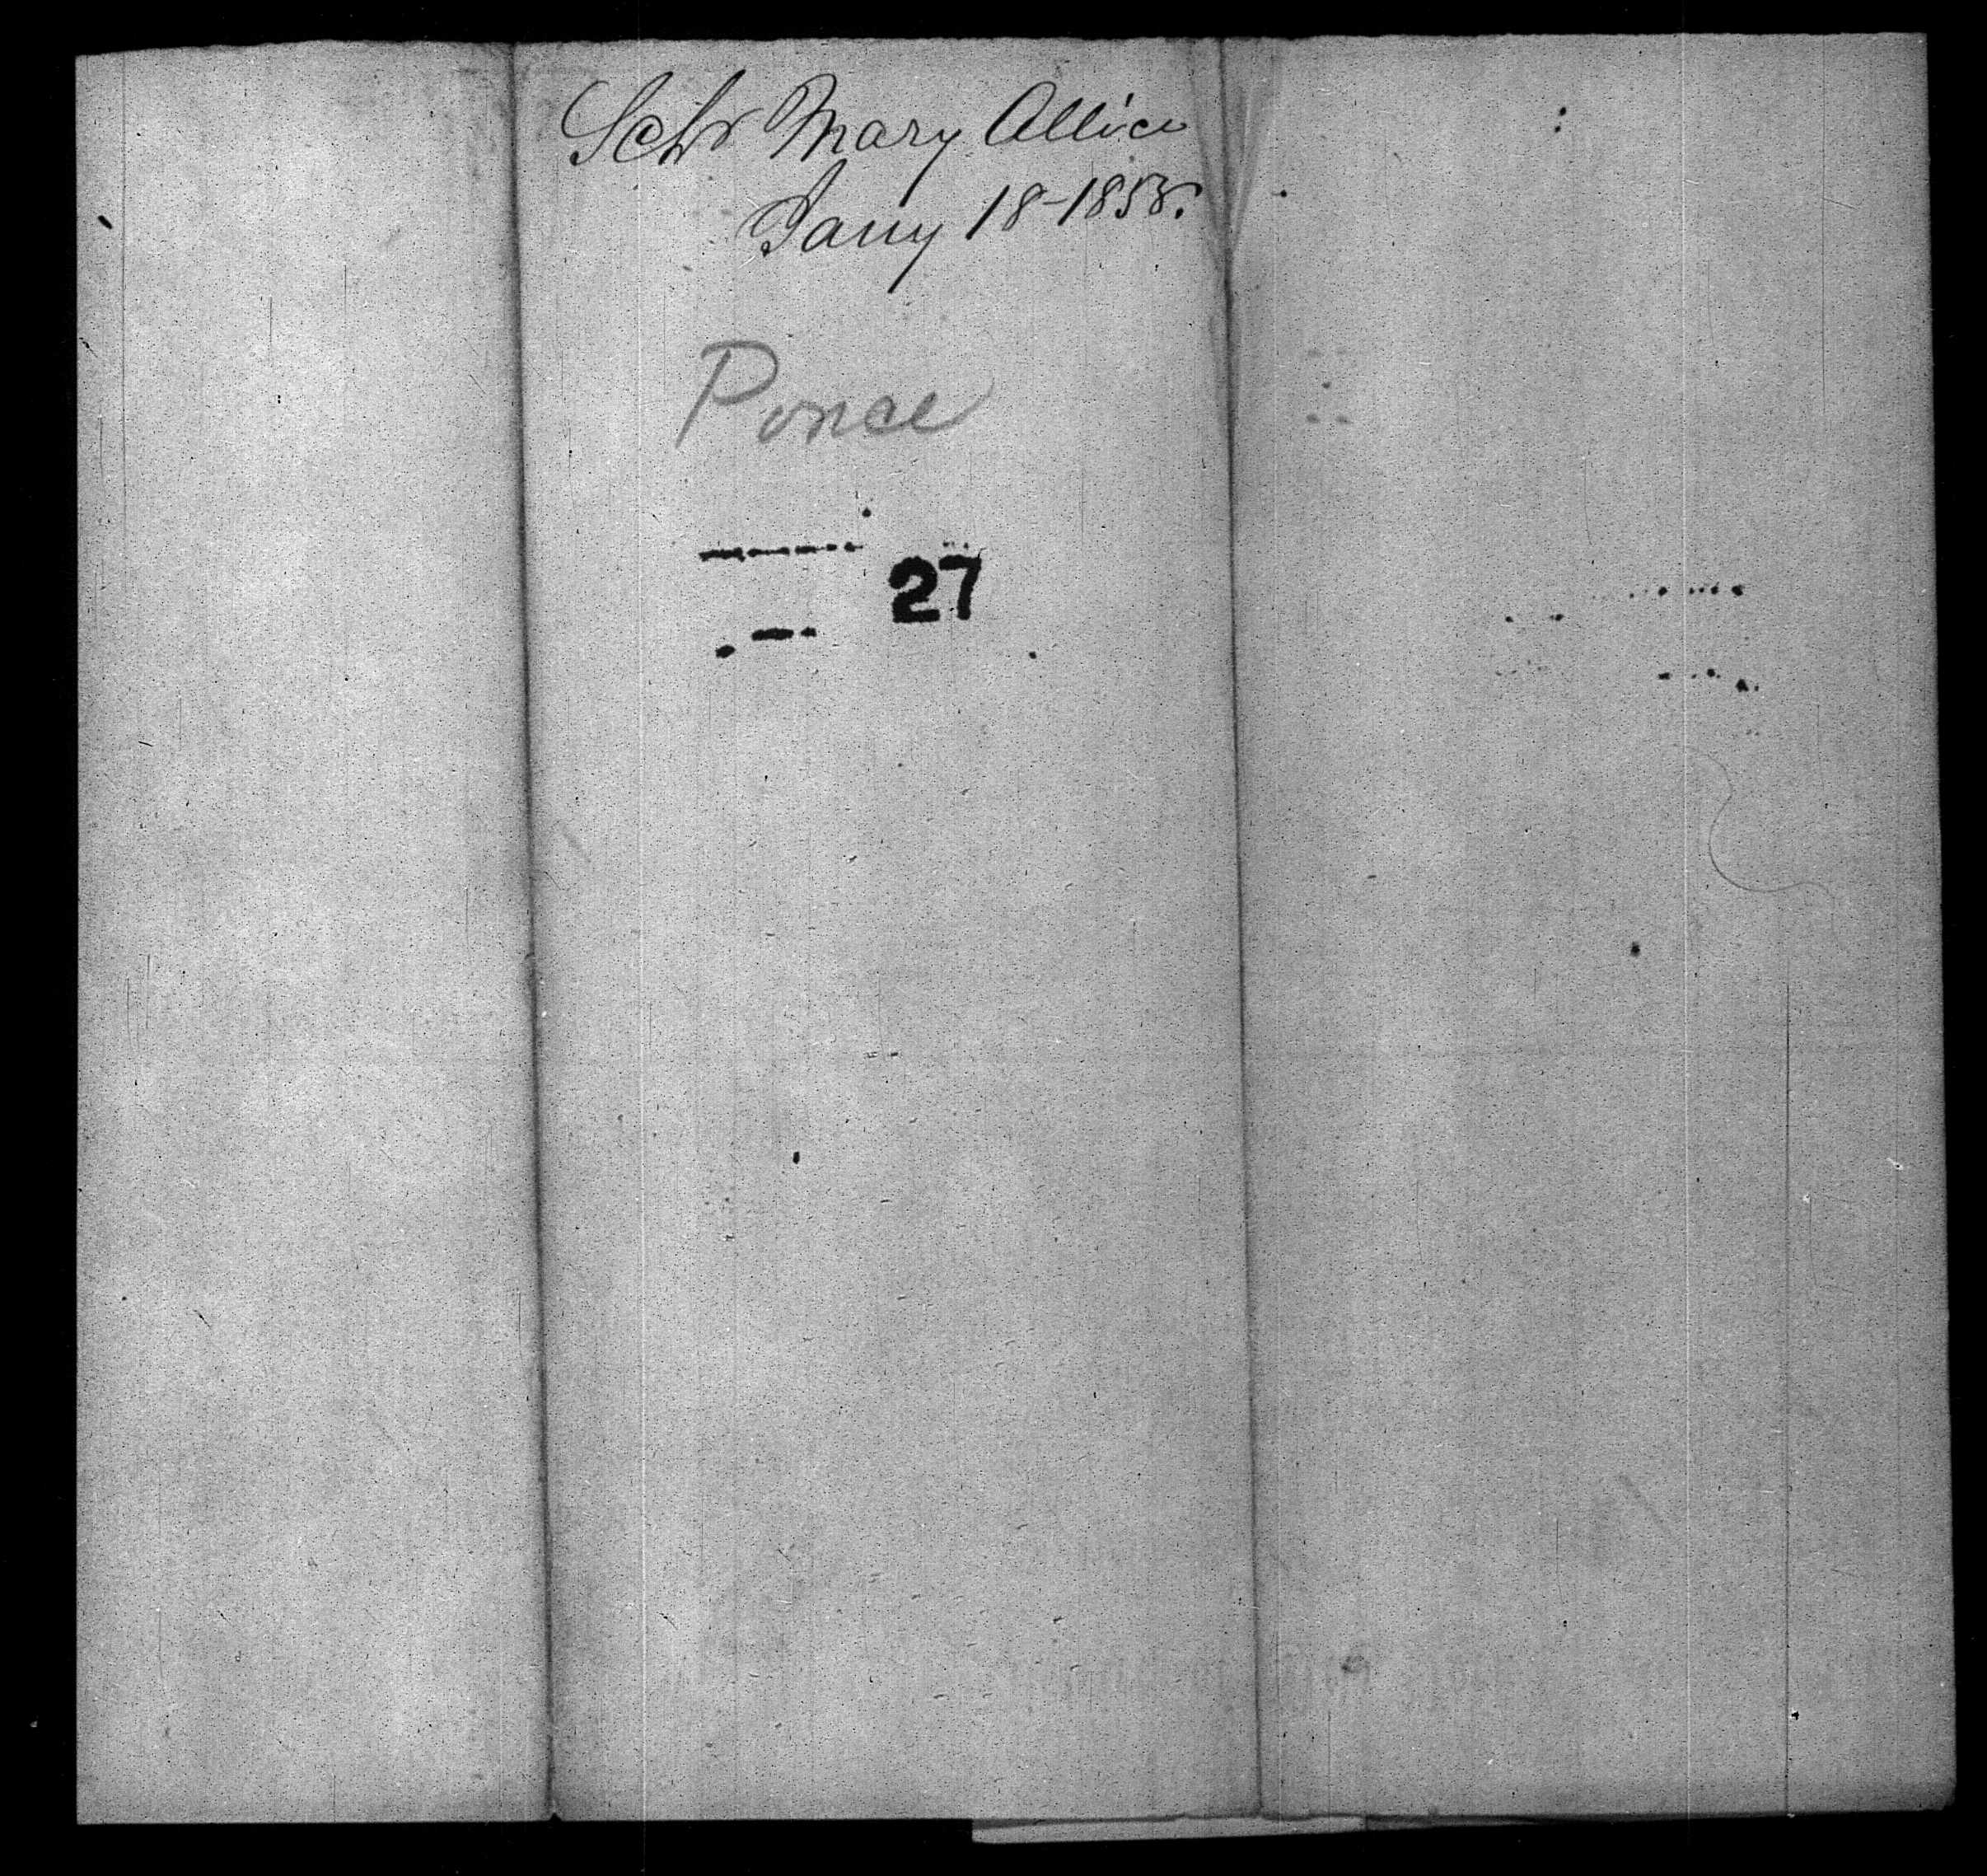 Schr Mary Allice
Jany 18-1853.
Ponce
27